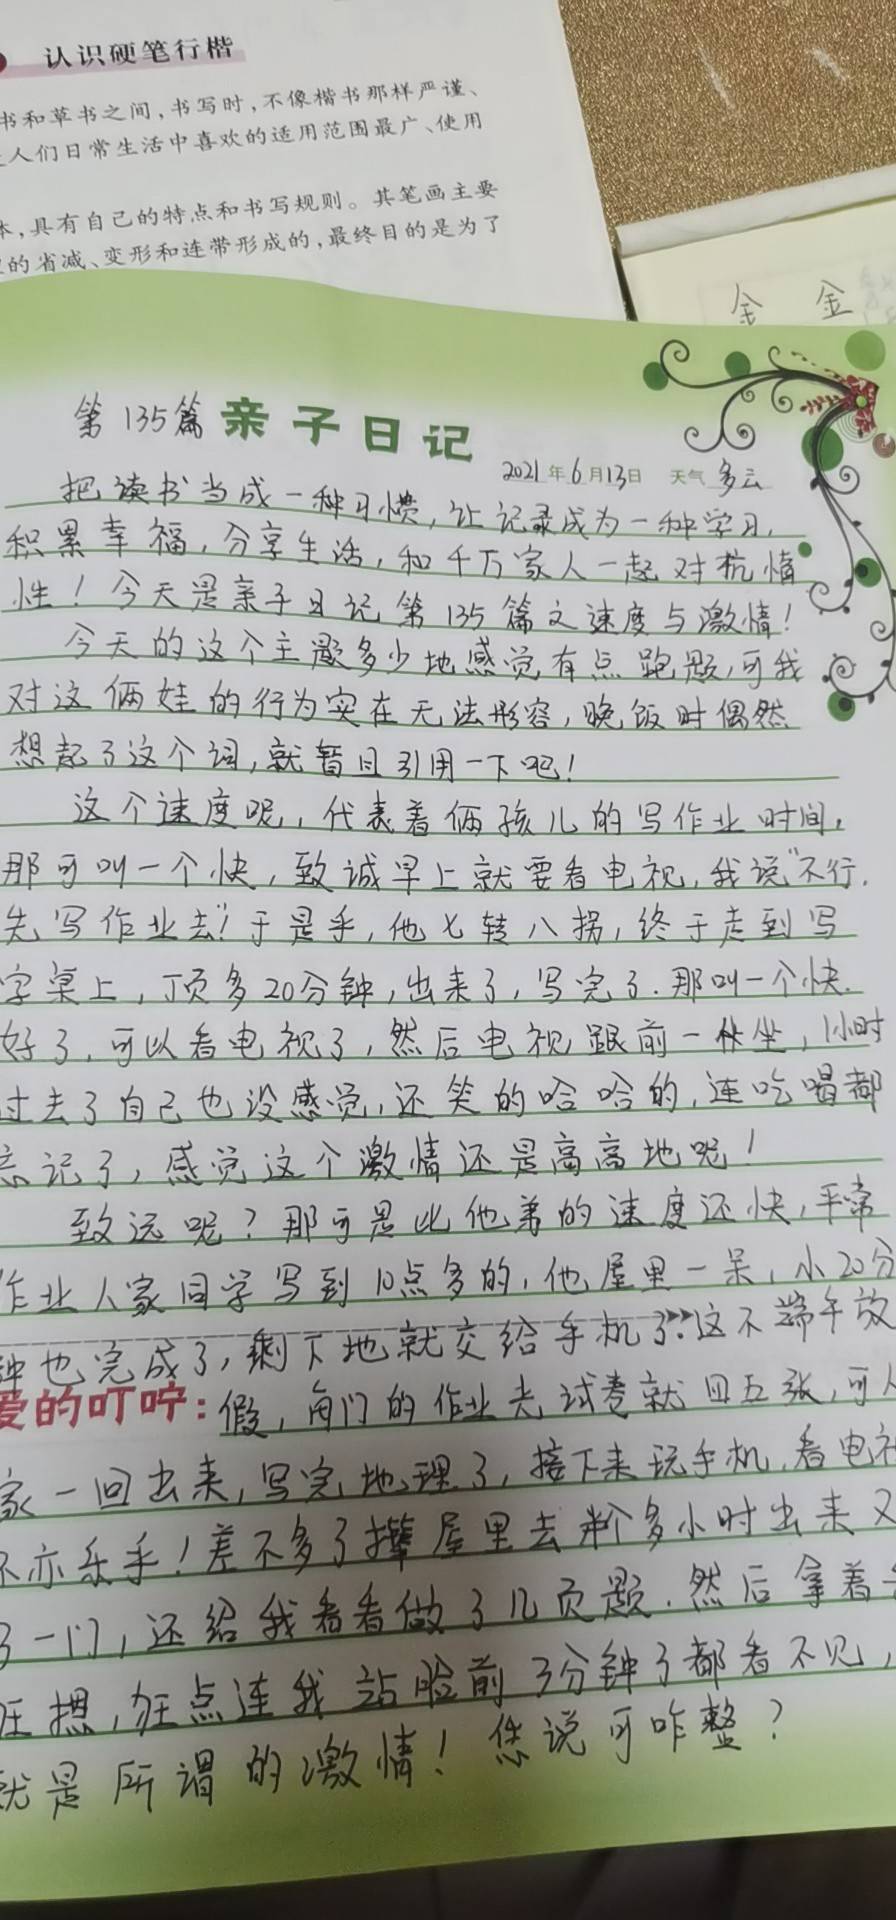 认识硬笔行楷
书和草书之间,书写时,不像楷书那样严谨、
人们日常生活中喜欢的适用范围最广、使用
本,具有自己的特点和书写规则。其笔画主要
的省减、变形和连带形成的,最终目的是为了
金 金
第135篇 亲子日记
2021年6月13日 天气 多云
把读书当成一种习惯,让记录成为一种学习,
积累幸福,分享生活,和千万家人一起对抗惰
性!今天是亲子日记第135篇文速度与激情!
今天的这个主题多少地感觉有点跑题,可我
对这俩娃的行为实在无法形容,晚饭时偶然
想起了这个词,就暂且引用一下吧!
这个速度呢,代表着俩孩儿的写作业时间,
那可叫一个快,致诚早上就要看电视,我说“不行,
先写作业去”!于是乎,他七转八拐,终于走到写
字桌上,顶多20分钟,出来了,写完了.那叫一个快.
好了,可以看电视了,然后电视跟前一坐,1小时
过去了自己也没感觉,还笑的哈哈的,连吃喝都
忘记了,感觉这个激情还是高高地呢!
致远呢?那可是比他弟的速度还快,平常
作业人家同学写到10点多的,他屋里一呆,小20分
钟也完成了,剩下地就交给手机了.这不端午放
爱的叮咛:假,每门的作业光试卷就四五张,可人
家一回出来,写完地理了,接下来玩手机,看电视
不亦乐乎!差不多了撵屋里去半个多小时出来又
了一门,还给我看看做了几页题.然后拿着手
狂摁,狂点连我站脸前3分钟了都看不见,
就是所谓的激情!您说可咋整?